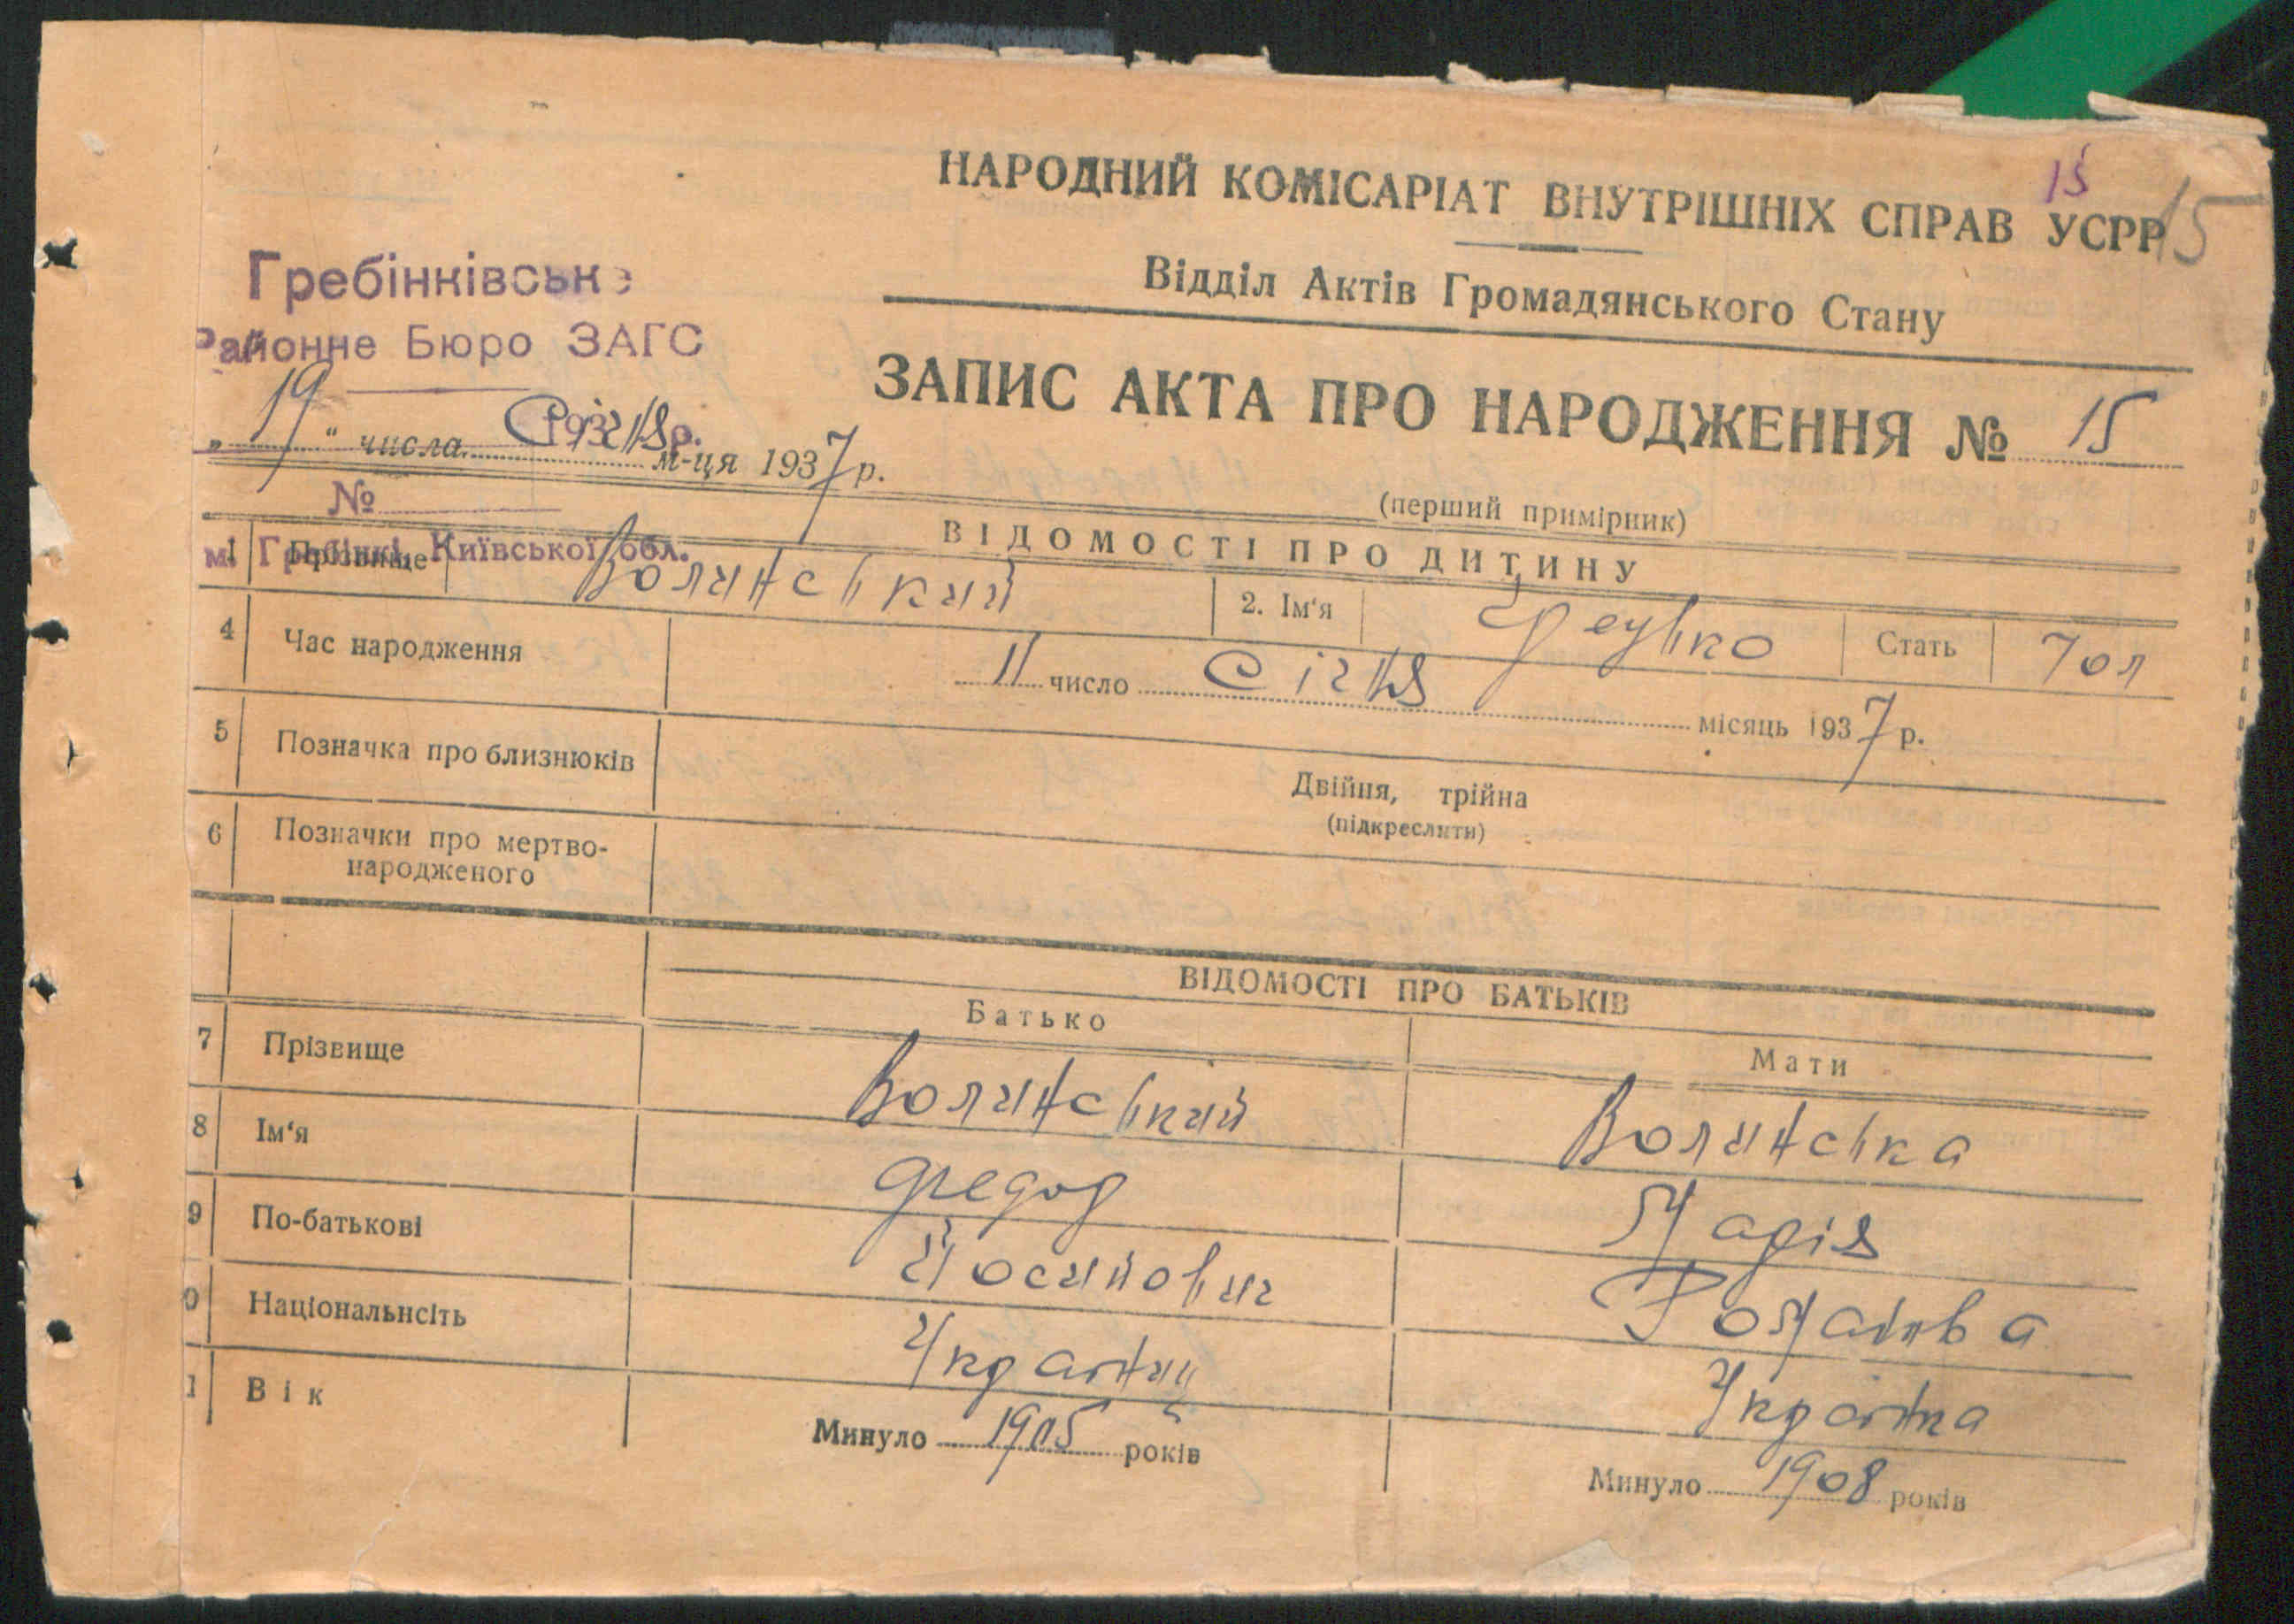 НАРОДНИЙ КОМІСАРІАТ ВНУТРІШНІХ СПРАВ УСРР
15
15
Відділ Актів Громадянського Стану
Гребінківське
Районне Бюро ЗАГС
193 р.
ЗАПИС АКТА ПРО НАРОДЖЕННЯ № 15
„19“ числа Січня м-ця 1937 р.
(перший примірник)
№
м. Гребінкі, Київської обл.
ВІДОМОСТІ ПРО ДИТИНУ
1 Прізвище Волинський 2. Ім‘я Стать Чол
4 Час народження 11 число Січня місяць 1937 р.
5 Позначка про близнюків Двійня, трійна
(підкреслити)
6 Позначки про мертво-
народженого
ВІДОМОСТІ ПРО БАТЬКІВ
Батько Мати
7 Прізвище Волинський Волинська
8 Ім‘я Федор Марія
9 По-батькові Йосипович Романовна
0 Національнсіть Українец Українка
1 Вік Минуло 1905 років Минуло 1908 років